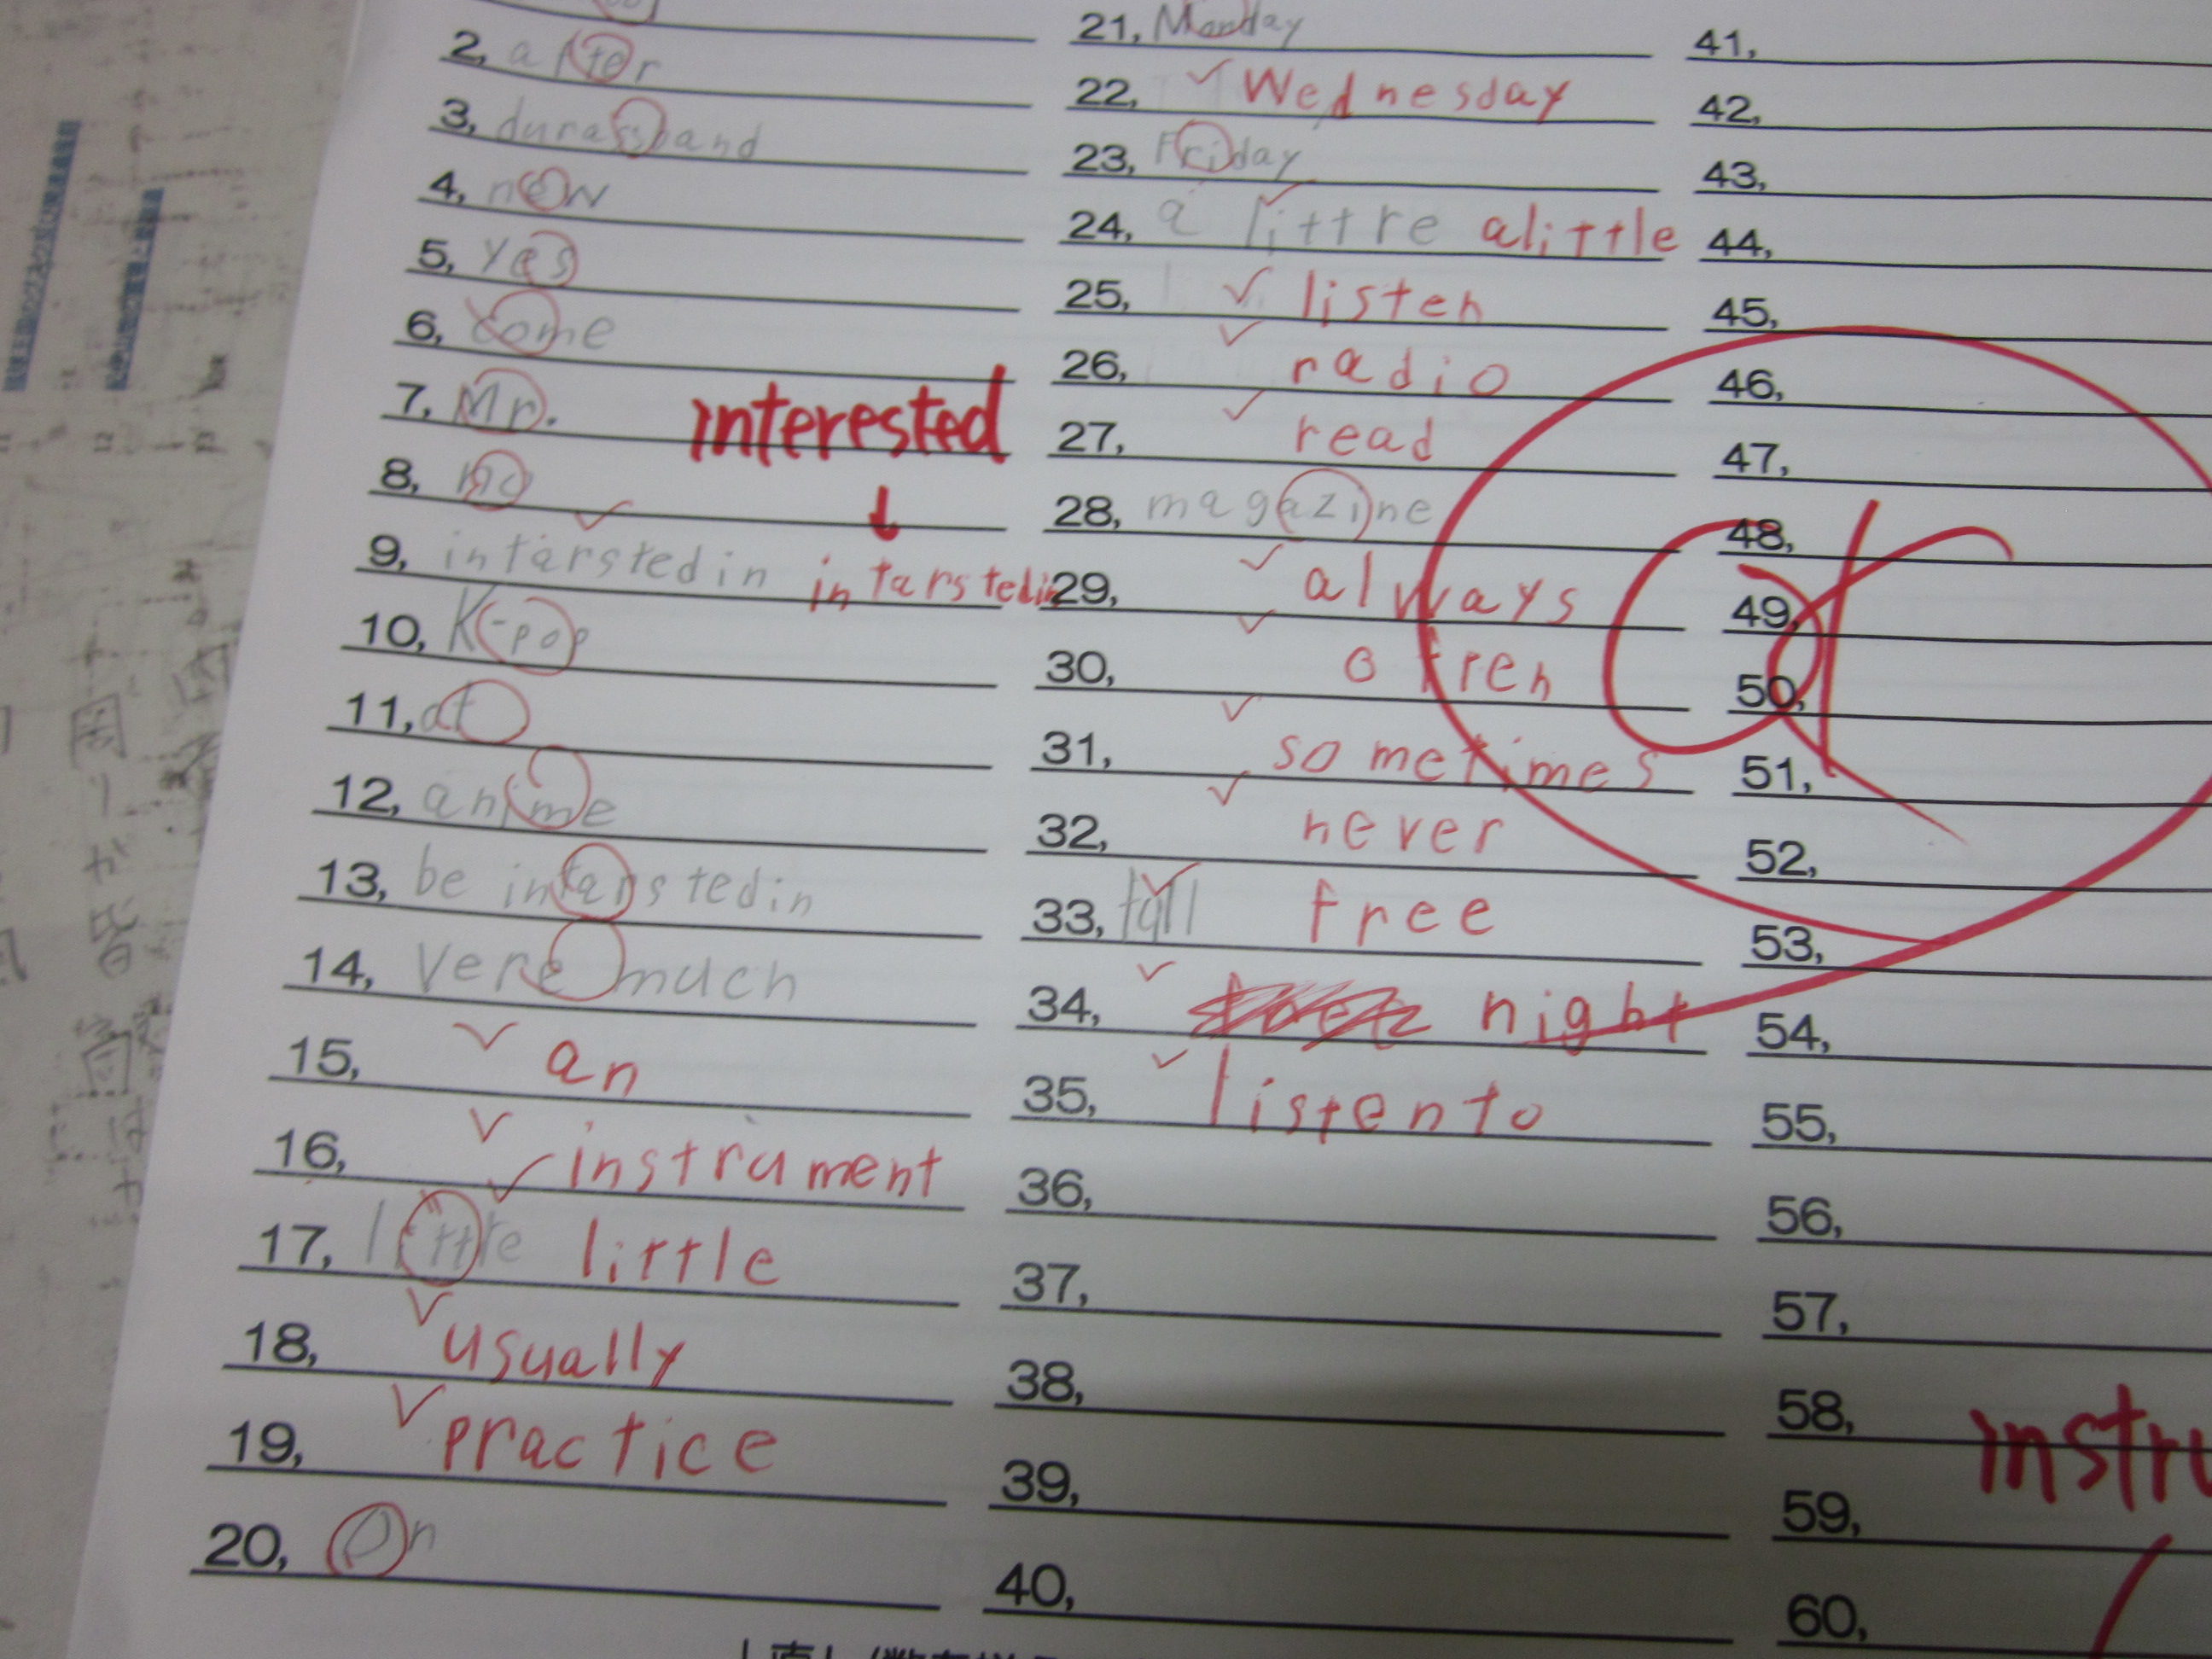 2, after
3, durassband
4, new
5, yes
6, come
7, Mr.
interested
8, no
9, intarsted in intarstedin
10, K-pop
11, at
12, anime
13, be intarsted in
14, vere much
15, an
16, instrument
17, little
18, usually
19, practice
20, On
21, Monday
22, Wednesday
23, Friday
24, a littre alittle
25, listen
26, radio
27, read
28, magazine
29, always
30, often
31, sometimes
32, never
33, tall free
34, night
35, listento
36,
37,
38,
39,
40,
41,
42,
43,
44,
45,
46,
47,
48,
49,
50,
OK
51,
52,
53,
54,
55,
56,
57,
58,
instru
59,
60,